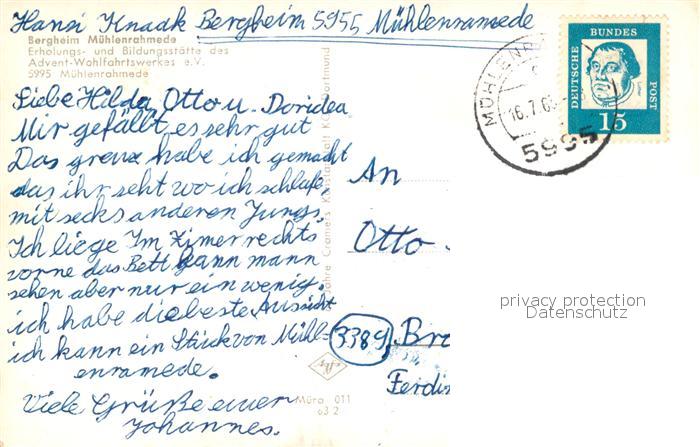 Hansi Knaak Bergheim 5955 Mühlenramede
Bergheim Mühlenrahmede
Erholungs- und Bildungsstätte des
Advent-Wohlfahrtswerkes e.V.
5995 Mühlenrahmede
Liebe Hilda, Otto u. Doridea
Mir gefällt es sehr gut
Das greuz habe ich gemacht
das ihr seht wo ich schlafe
mit secks anderen Jungs.
Ich liege Im Zimer rechts
vorne das Bett kann mann
sehen aber nur ein wenig.
ich habe die beste Aussicht
ich kann ein Stück von Mühl-
enramede.
Viele Grüße euer
Johannes.
Jahre Cramers Dortmund
Müra 011
63 2
DEUTSCHE BUNDES POST
15
MÜHLENR
16.7.6
5995
An
Otto
3389 Bra
Ferdi
privacy protection
Datenschutz